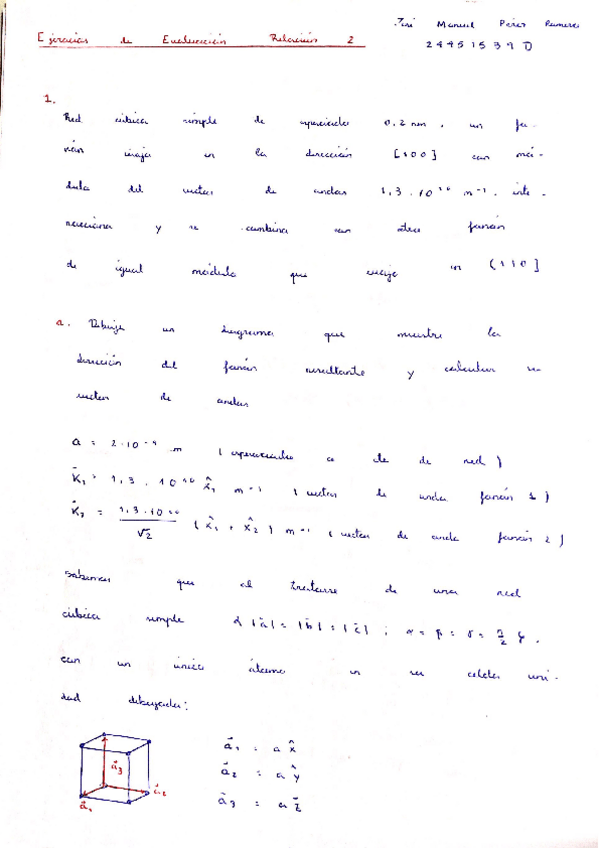 José Manuel Pérez Ramírez
24451539D
Ejercicios de Evaluación Relación 2
1.
Red cúbica simple de espaciado 0,2 nm. un fo-
nón viaja en la dirección [100] con mó-
dulo del vector de ondas 1,3 · 10¹⁰ m⁻¹. inte-
racciona y se combina con otro fonón
de igual módulo que viaja en [110]
a. Dibuje un diagrama que muestre la
dirección del fonón resultante y calcular su
vector de ondas
a = 2·10⁻⁹ m ( espaciado o cte de red )
K⃗₁ = 1,3 · 10¹⁰ x̂₁ m⁻¹ ( vector de onda fonón 1 )
K⃗₂ = 1,3·10¹⁰/√2 ( x̂₁ + x̂₂ ) m⁻¹ ( vector de onda fonón 2 )
Sabemos que al tratarse de una red
cúbica simple { |a⃗| = |b⃗| = |c⃗| ; α = β = γ = π/2 },
con un único átomo en su celda uni-
dad dibujada:
a⃗₁ = a x̂
a⃗₂ = a ŷ
a⃗₃ = a ẑ
a⃗₃
a⃗₂
a⃗₁